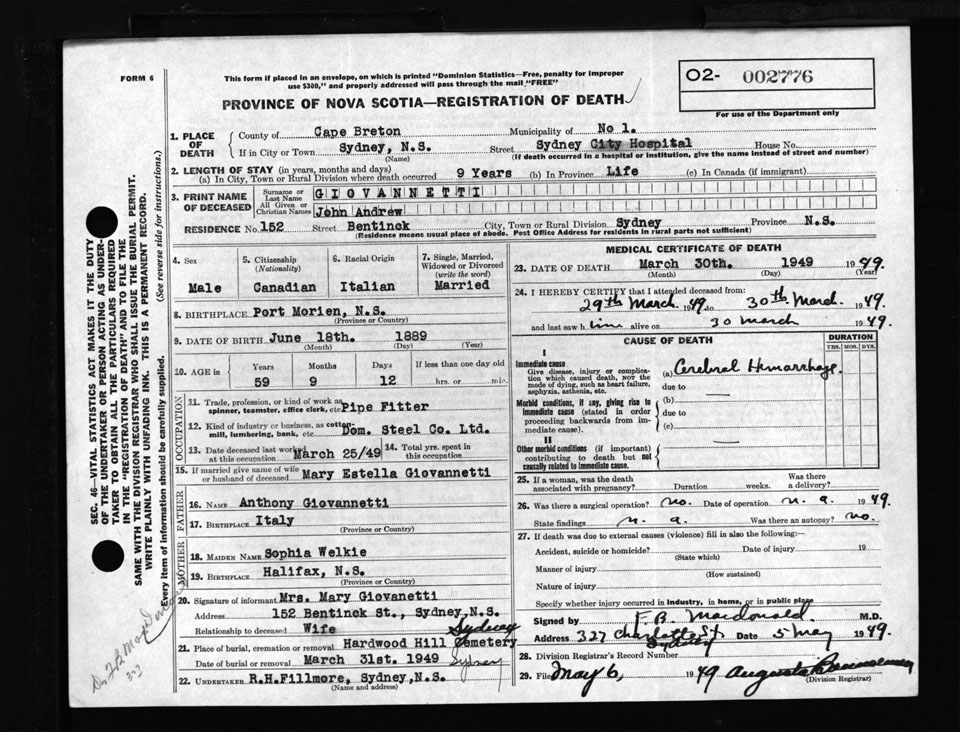 FORM 6
This form if placed in an envelope, on which is printed "Dominion Statistics—Free, penalty for improper
use $300," and properly addressed will pass through the mail "FREE"
O2- 002776
For use of the Department only
PROVINCE OF NOVA SCOTIA—REGISTRATION OF DEATH
1. PLACE OF DEATH
County of Cape Breton Municipality of No 1.
If in City or Town Sydney, N.S. Street Sydney City Hospital House No.
(Name) (If death occurred in a hospital or institution, give the name instead of street and number)
2. LENGTH OF STAY (in years, months and days)
(a) In City, Town or Rural Division where death occurred 9 Years (b) In Province Life (c) In Canada (if immigrant)
3. PRINT NAME OF DECEASED
Surname or Last Name GIOVANNETTI
All Given or Christian Names John Andrew
RESIDENCE No. 152 Street Bentinck City, Town or Rural Division Sydney Province N.S.
(Residence means usual place of abode. Post Office Address for residents in rural parts not sufficient)
4. Sex
Male
5. Citizenship (Nationality)
Canadian
6. Racial Origin
Italian
7. Single, Married, Widowed or Divorced (write the word)
Married
8. BIRTHPLACE Port Morien, N.S.
(Province or Country)
9. DATE OF BIRTH June 18th. 1889
(Month) (Day) (Year)
10. AGE in Years Months Days If less than one day old
59 9 12 hrs. or min.
OCCUPATION
11. Trade, profession, or kind of work as
spinner, teamster, office clerk, etc Pipe Fitter
12. Kind of industry or business, as cotton-
mill, lumbering, bank, etc. Dom. Steel Co. Ltd.
13. Date deceased last worked at this occupation March 25/49
14. Total yrs. spent in this occupation
15. If married give name of wife
or husband of deceased Mary Estella Giovannetti
FATHER
16. NAME Anthony Giovannetti
17. BIRTHPLACE Italy
(Province or Country)
MOTHER
18. MAIDEN NAME Sophia Welkie
19. BIRTHPLACE Halifax, N.S.
(Province or Country)
20. Signature of informant Mrs. Mary Giovanetti
Address 152 Bentinck St., Sydney, N.S.
Relationship to deceased Wife
Sydney
21. Place of burial, cremation or removal Hardwood Hill Cemetery
Date of burial or removal March 31st. 1949 Sydney
22. UNDERTAKER R.H.Fillmore, Sydney, N.S.
(Name and address)
MEDICAL CERTIFICATE OF DEATH
23. DATE OF DEATH March 30th. 1949 1949
(Month) (Day) (Year)
24. I HEREBY CERTIFY that I attended deceased from:
29th March 49 to 30th March. 1949.
and last saw him alive on 30 March 1949.
CAUSE OF DEATH
DURATION
YRS. MOS. DYS.
I
Immediate cause
Give disease, injury or complication which caused death, NOT the mode of dying, such as heart failure, asphyxia, asthenia, etc.
(a) Cerebral Hemorrhage.
due to
Morbid conditions, if any, giving rise to immediate cause (stated in order proceeding backwards from immediate cause).
(b)
due to
(c)
II
Other morbid conditions (if important) contributing to death but not causally related to immediate cause.
25. If a woman, was the death
associated with pregnancy? Duration weeks. Was there a delivery?
26. Was there a surgical operation? no. Date of operation n. a. 1949
State findings n. a. Was there an autopsy? no.
27. If death was due to external causes (violence) fill in also the following:—
Accident, suicide or homicide? Date of injury 19
(State which)
Manner of injury
(How sustained)
Nature of injury
Specify whether injury occurred in industry, in home, or in public place
Signed by F. B. Macdonald. M.D.
Address 327 Charlotte St. Sydney Date 5 May 1949.
28. Division Registrar's Record Number
29. Filed May 6, 1949
(Division Registrar)
SEC. 46—VITAL STATISTICS ACT MAKES IT THE DUTY
OF THE UNDERTAKER OR PERSON ACTING AS UNDER-
TAKER TO OBTAIN ALL THE PARTICULARS REQUIRED
IN THE "REGISTRATION OF DEATH" AND TO FILE THE
SAME WITH THE DIVISION REGISTRAR WHO SHALL ISSUE THE BURIAL PERMIT.
WRITE PLAINLY WITH UNFADING INK. THIS IS A PERMANENT RECORD.
Every item of information should be carefully supplied. (See reverse side for instructions.)